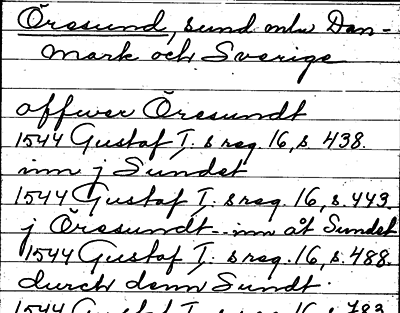 Öresund, sund mlm Dan-
mark och Sverige
offwer Öresundt
1544 Gustaf I:s reg. 16, s. 438.
inn j Sundet
1544 Gustaf I:s reg. 16, s. 443.
j Öresundt - inn åt Sundet
1544 Gustaf I:s reg. 16, s. 488.
durch denn Sundt
1544 Gustaf I:s reg. 16, s. 783